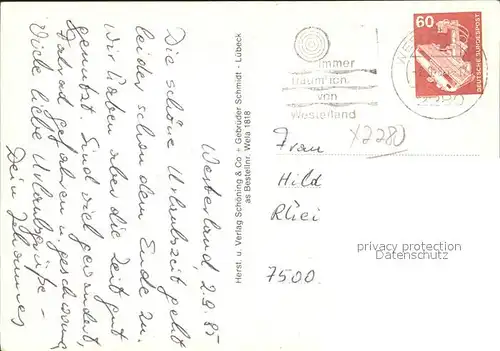 Westerland, 2.9.85
Die schöne Urlaubszeit geht
leider schon dem Ende zu.
Wir haben aber die Zeit gut
genutzt. Sind viel gewandert,
Fahrrad gefahren u. geschwommen
Viele liebe Urlaubsgrüße –
Dein Johannes
Herst. u. Verlag Schöning & Co + Gebrüder Schmidt - Lübeck
as Bestellnr. Wela 1818
immer
träum' ich
von
Westerland
60
DEUTSCHE BUNDESPOST
X2280
Frau
Hild
Rhei
7500
privacy protection
Datenschutz